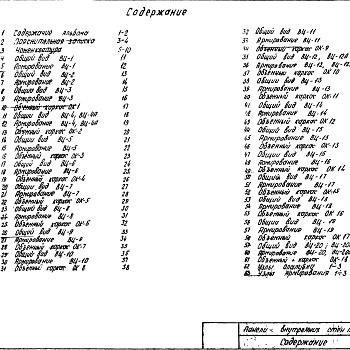 Содержание
1 Содержание альбома 1-2
2 Пояснительная записка 3-4
3 Номенклатура 5-10
4 Общий вид ВЦ-1 11
5 Армирование ВЦ-1 12
6 Общий вид ВЦ-2 13
7 Армирование ВЦ-2 14
8 Общий вид ВЦ-3 15
9 Армирование ВЦ-3 16
10 Объемный каркас ОК 1 17
11 Общий вид ВЦ-4, ВЦ-4А 18
12 Армирование ВЦ-4, ВЦ-4А 19
13 Объемный каркас ОК-2 20
14 Общий вид ВЦ-5 21
15 Армирование ВЦ-5 22
16 Объемный каркас ОК-3 23
17 Общий вид ВЦ-6 24
18 Армирование ВЦ-6 25
19 Объемный каркас ОК-4 26
20 Общий вид ВЦ-7 27
21 Армирование ВЦ-7 28
22 Объемный каркас ОК-5 29
23 Общий вид ВЦ-8 30
24 Армирование ВЦ-8 31
25 Объемный каркас ОК-6 32
26 Общий вид ВЦ-9 33
27 Армирование ВЦ-9 34
28 Объемный каркас ОК-7 35
29 Общий вид ВЦ-10 36
30 Армирование ВЦ-10 37
31 Объемный каркас ОК 8 38
32 Общий вид ВЦ-11
33 Армирование ВЦ-11
34 Объемный каркас ОК-9
35 Общий вид ВЦ-12,
36 Армирование ВЦ-12,
37 Объемный каркас ОК 10
38 Общий вид ВЦ-13
39 Армирование ВЦ-13
40 Объемный каркас ОК-11
41 Общий вид ВЦ-14
42 Армирование ВЦ-14
43 Объемный каркас ОК 12
44 Общий вид ВЦ-15
45 Армирование ВЦ-15
46 Объемный каркас ОК-13
47 Общий вид ВЦ-16
48 Армирование ВЦ-16
49 Объемный каркас ОК 14
50 Общий вид ВЦ-17
51 Армирование ВЦ-17
52 Объемный каркас ОК-15
53 Общий вид ВЦ-18
54 Армирование ВЦ-18
55 Объемный каркас ОК 16
56 Общий вид ВЦ-19
57 Армирование ВЦ-19
58 Объемный каркас ОК 17
59 Общий вид ВЦ-20;
60 Армирование ВЦ-20,
61 Объемный каркас ОК-18
62 Узлы 1-3
63 Узлы армирования 1-3
Панели внутренних стен
Содержание